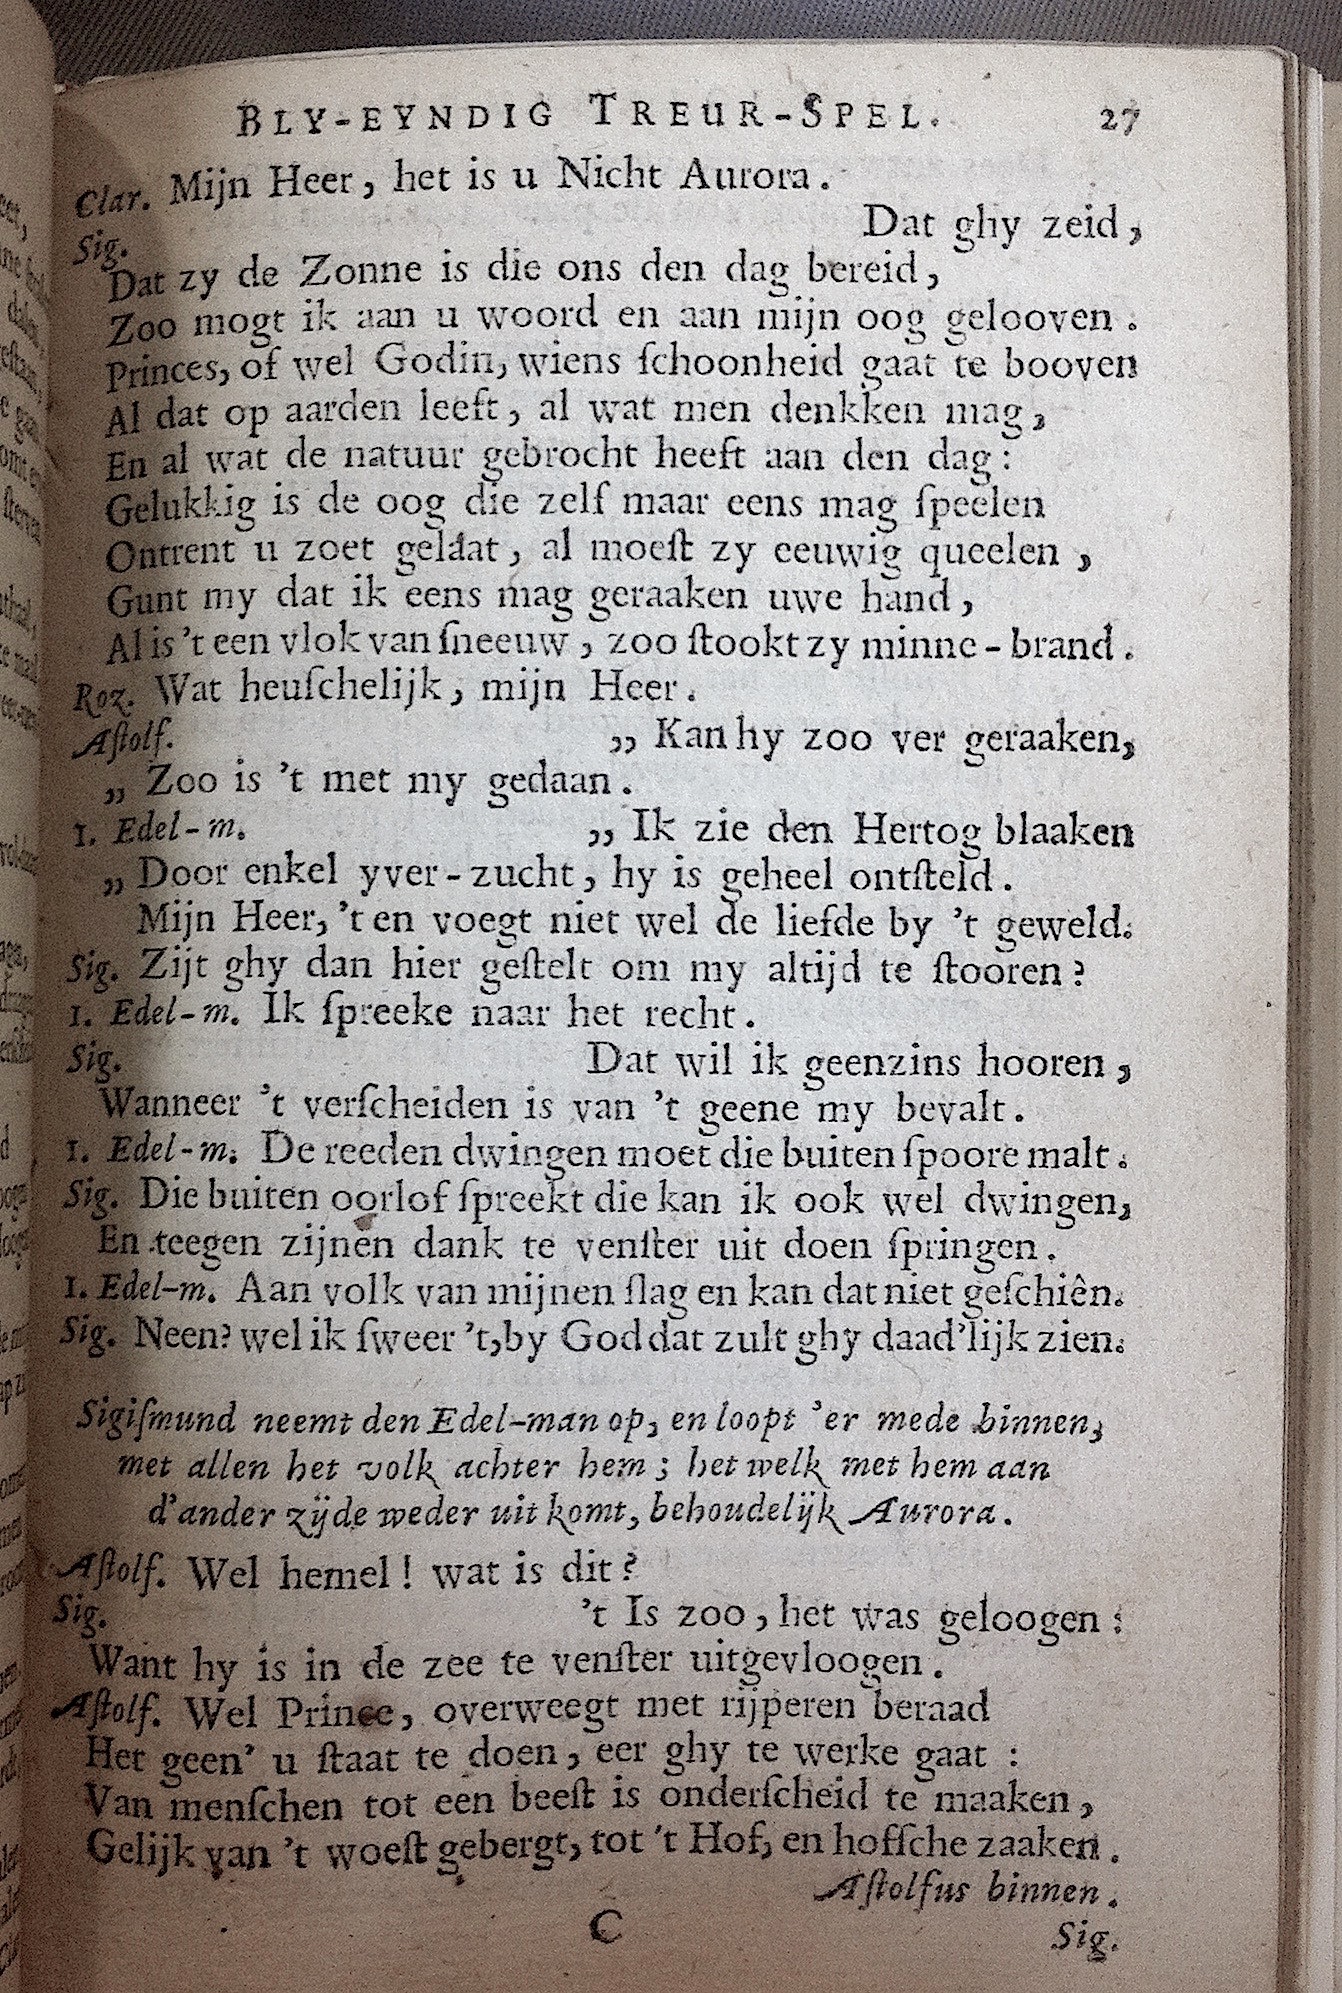 BLY-EYNDIG TREUR-SPEL. 27
Clar. Mijn Heer, het is u Nicht Aurora.
Sig. Dat ghy zeid,
Dat zy de Zonne is die ons den dag bereid,
Zoo mogt ik aan u woord en aan mijn oog gelooven.
Princes, of wel Godin, wiens ſchoonheid gaat te booven
Al dat op aarden leeft, al wat men denkken mag,
En al wat de natuur gebrocht heeft aan den dag:
Gelukkig is de oog die zelf maar eens mag ſpeelen
Ontrent u zoet gelaat, al moeſt zy eeuwig queelen,
Gunt my dat ik eens mag geraaken uwe hand,
Al is 't een vlok van ſneeuw, zoo ſtookt zy minne-brand.
Roz. Wat heuſchelijk, mijn Heer.
Aſtolf. ,, Kan hy zoo ver geraaken,
,, Zoo is 't met my gedaan.
1. Edel-m. ,, Ik zie den Hertog blaaken
,, Door enkel yver-zucht, hy is geheel ontſteld.
Mijn Heer, 't en voegt niet wel de liefde by 't geweld.
Sig. Zijt ghy dan hier geſtelt om my altijd te ſtooren?
1. Edel-m. Ik ſpreeke naar het recht.
Sig. Dat wil ik geenzins hooren,
Wanneer 't verſcheiden is van 't geene my bevalt.
1. Edel-m. De reeden dwingen moet die buiten ſpoore malt.
Sig. Die buiten oorlof ſpreekt die kan ik ook wel dwingen,
En teegen zijnen dank te venſter uit doen ſpringen.
1. Edel-m. Aan volk van mijnen ſlag en kan dat niet geſchiên.
Sig. Neen? wel ik ſweer 't, by God dat zult ghy daad'lijk zien.
Sigiſmund neemt den Edel-man op, en loopt 'er mede binnen,
met allen het volk achter hem; het welk met hem aan
d'ander zijde weder uit komt, behoudelijk Aurora.
Aſtolf. Wel hemel! wat is dit?
Sig. 't Is zoo, het was geloogen:
Want hy is in de zee te venſter uitgevloogen.
Aſtolf. Wel Prince, overweegt met rijperen beraad
Het geen' u ſtaat te doen, eer ghy te werke gaat:
Van menſchen tot een beeſt is onderſcheid te maaken,
Gelijk van 't woeſt gebergt, tot 't Hof, en hofſche zaaken.
Aſtolfus binnen.
C
Sig.